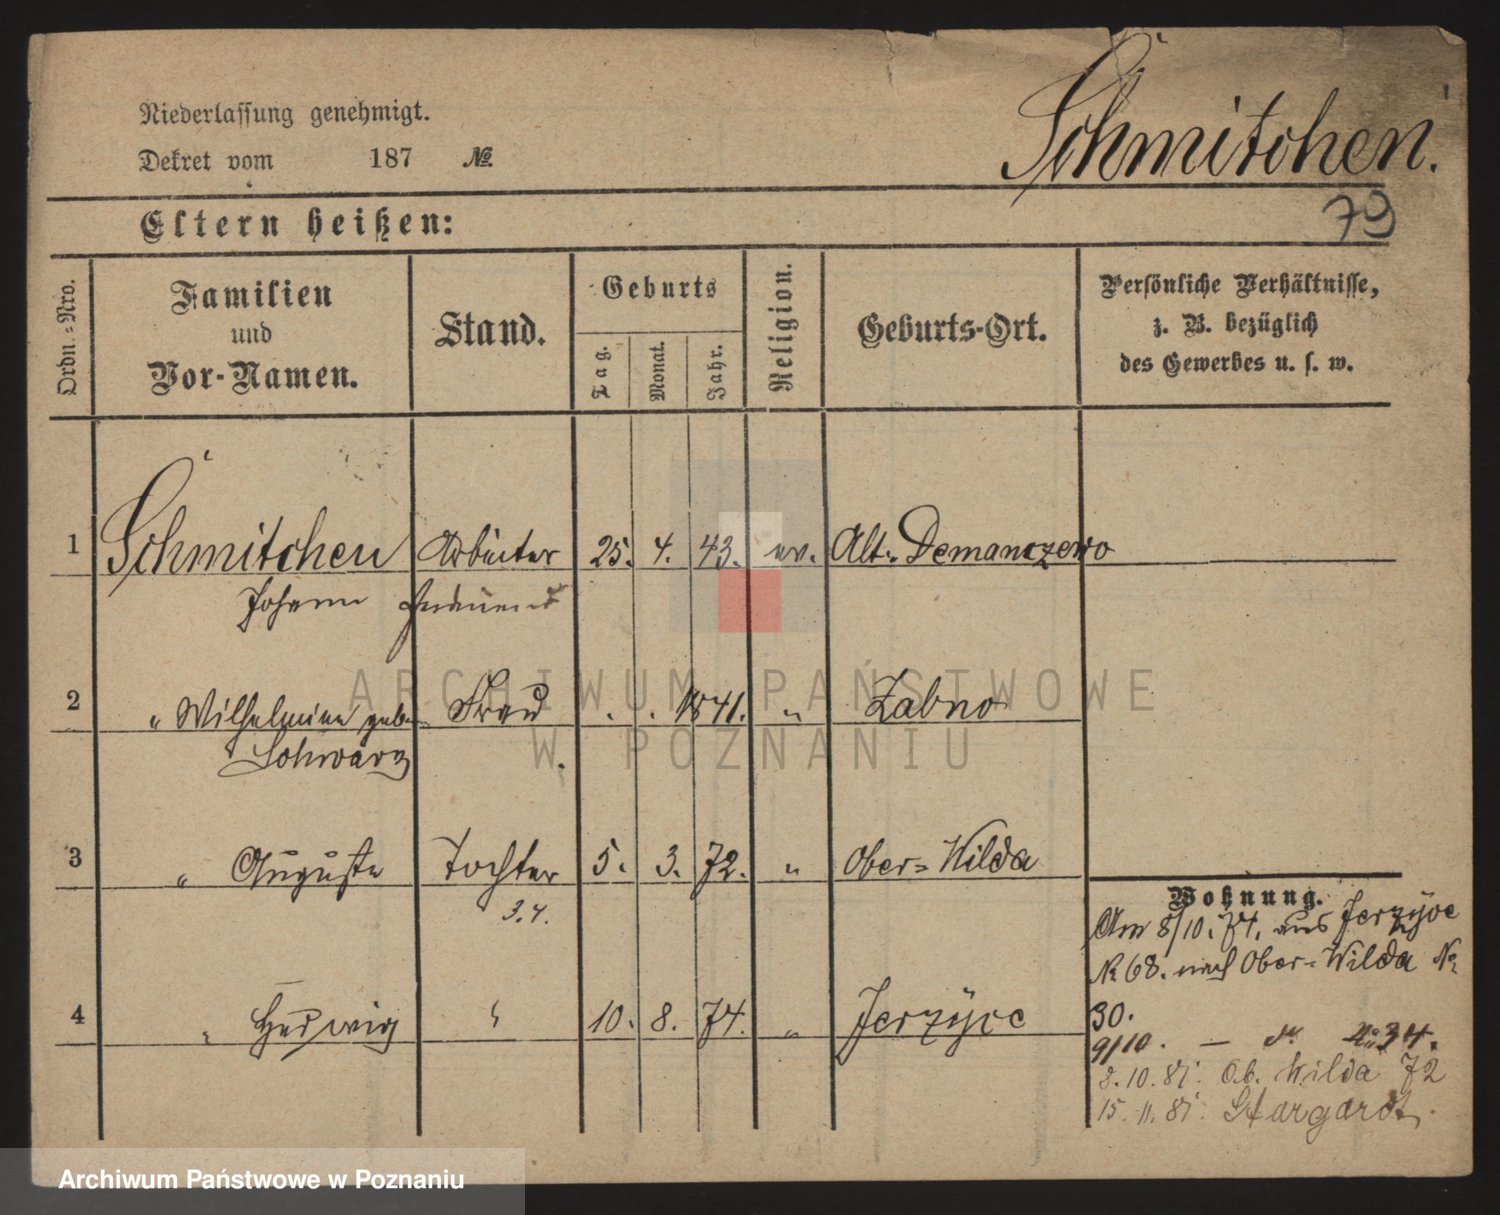 Niederlassung genehmigt.
Schmitchen.
Dekret vom 187 №
79
Eltern heißen:
Ordn.-Nro.
Familien und Vor-Namen.
Stand.
Geburts
Tag.
Monat.
Jahr.
Religion.
Geburts-Ort.
Persönliche Verhältnisse,
z. B. bezüglich
des Gewerbes u. s. w.
1 Schmitchen Arbeiter 25. 4. 43. ev. Alt-Demanczewo
Johann
2 " Wilhelmine geb. Frau . . 1841. " Zabno
Schwarz
3 " Auguste Tochter 5. 3. 72. " Ober-Wilda
3.4.
4 " Hedwig " 10. 8. 74. " Jerzyce
Wohnung.
Am 8/10. 74. aus Jerzyce
№ 68. nach Ober-Wilda №
30.
9/10. — № 34.
8.10.81. Ob. Wilda 72
15.11.81. Stargardt.
ARCHIWUM PAŃSTWOWE
W POZNANIU
Archiwum Państwowe w Poznaniu